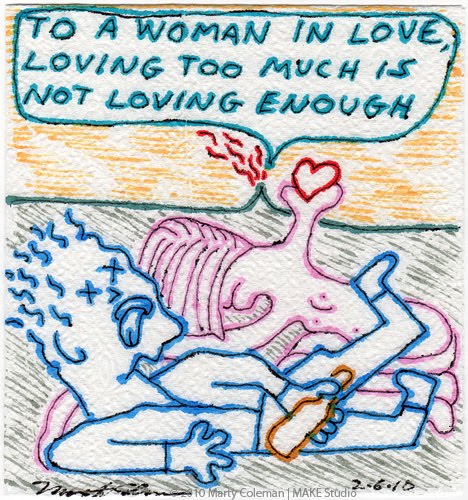 TO A WOMAN IN LOVE,
LOVING TOO MUCH IS
NOT LOVING ENOUGH
2-6-10
2010 Marty Coleman | MAKE Studio